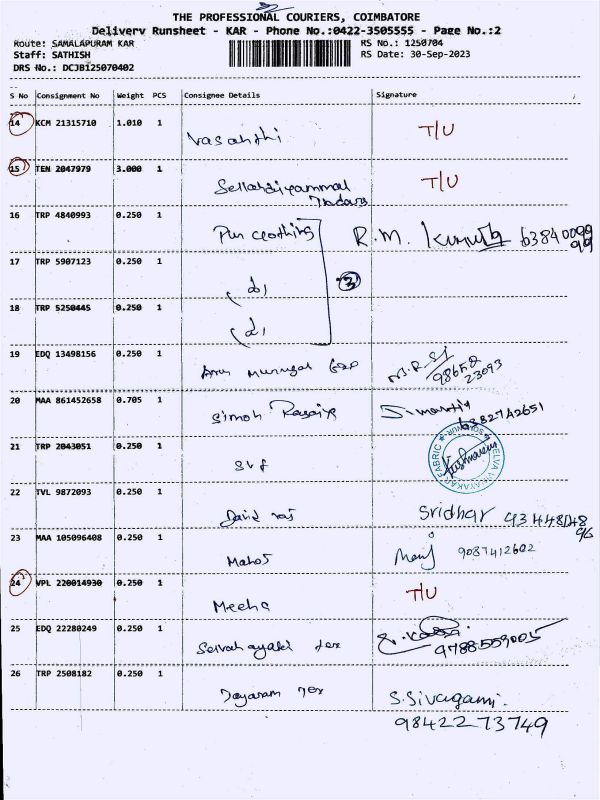 THE PROFESSIONAL COURIERS, COIMBATORE
Delivery Runsheet - KAR - Phone No.:0422-3505555 - Page No.:2
Route: SAMALAPURAM KAR RS No.: 1250704
Staff: SATHISH RS Date: 30-Sep-2023
DRS No.: DCJB125070402
S No Consignment No Weight PCS Consignee Details Signature
14 KCM 21315710 1.010 1 Vasanthi T/U
15 TEN 2047979 3.000 1 T/U
16 TRP 4840993 0.250 1 Pun clothing R.M.
17 TRP 5907123 0.250 1 3
18 TRP 5250445 0.250 1
19 EDQ 13498156 0.250 1 Murugal
20 MAA 861452658 0.705 1 Simon
21 TRP 2043051 0.250 1 SVF
22 TVL 9872093 0.250 1 David raj Sridhar
23 MAA 105096408 0.250 1 Manoj 9087412602
24 VPL 220014930 0.250 1 Meena T/U
25 EDQ 22280249 0.250 1 tex 9788559005
26 TRP 2508182 0.250 1 Dayaram Tex S.Sivagami.
9842273749